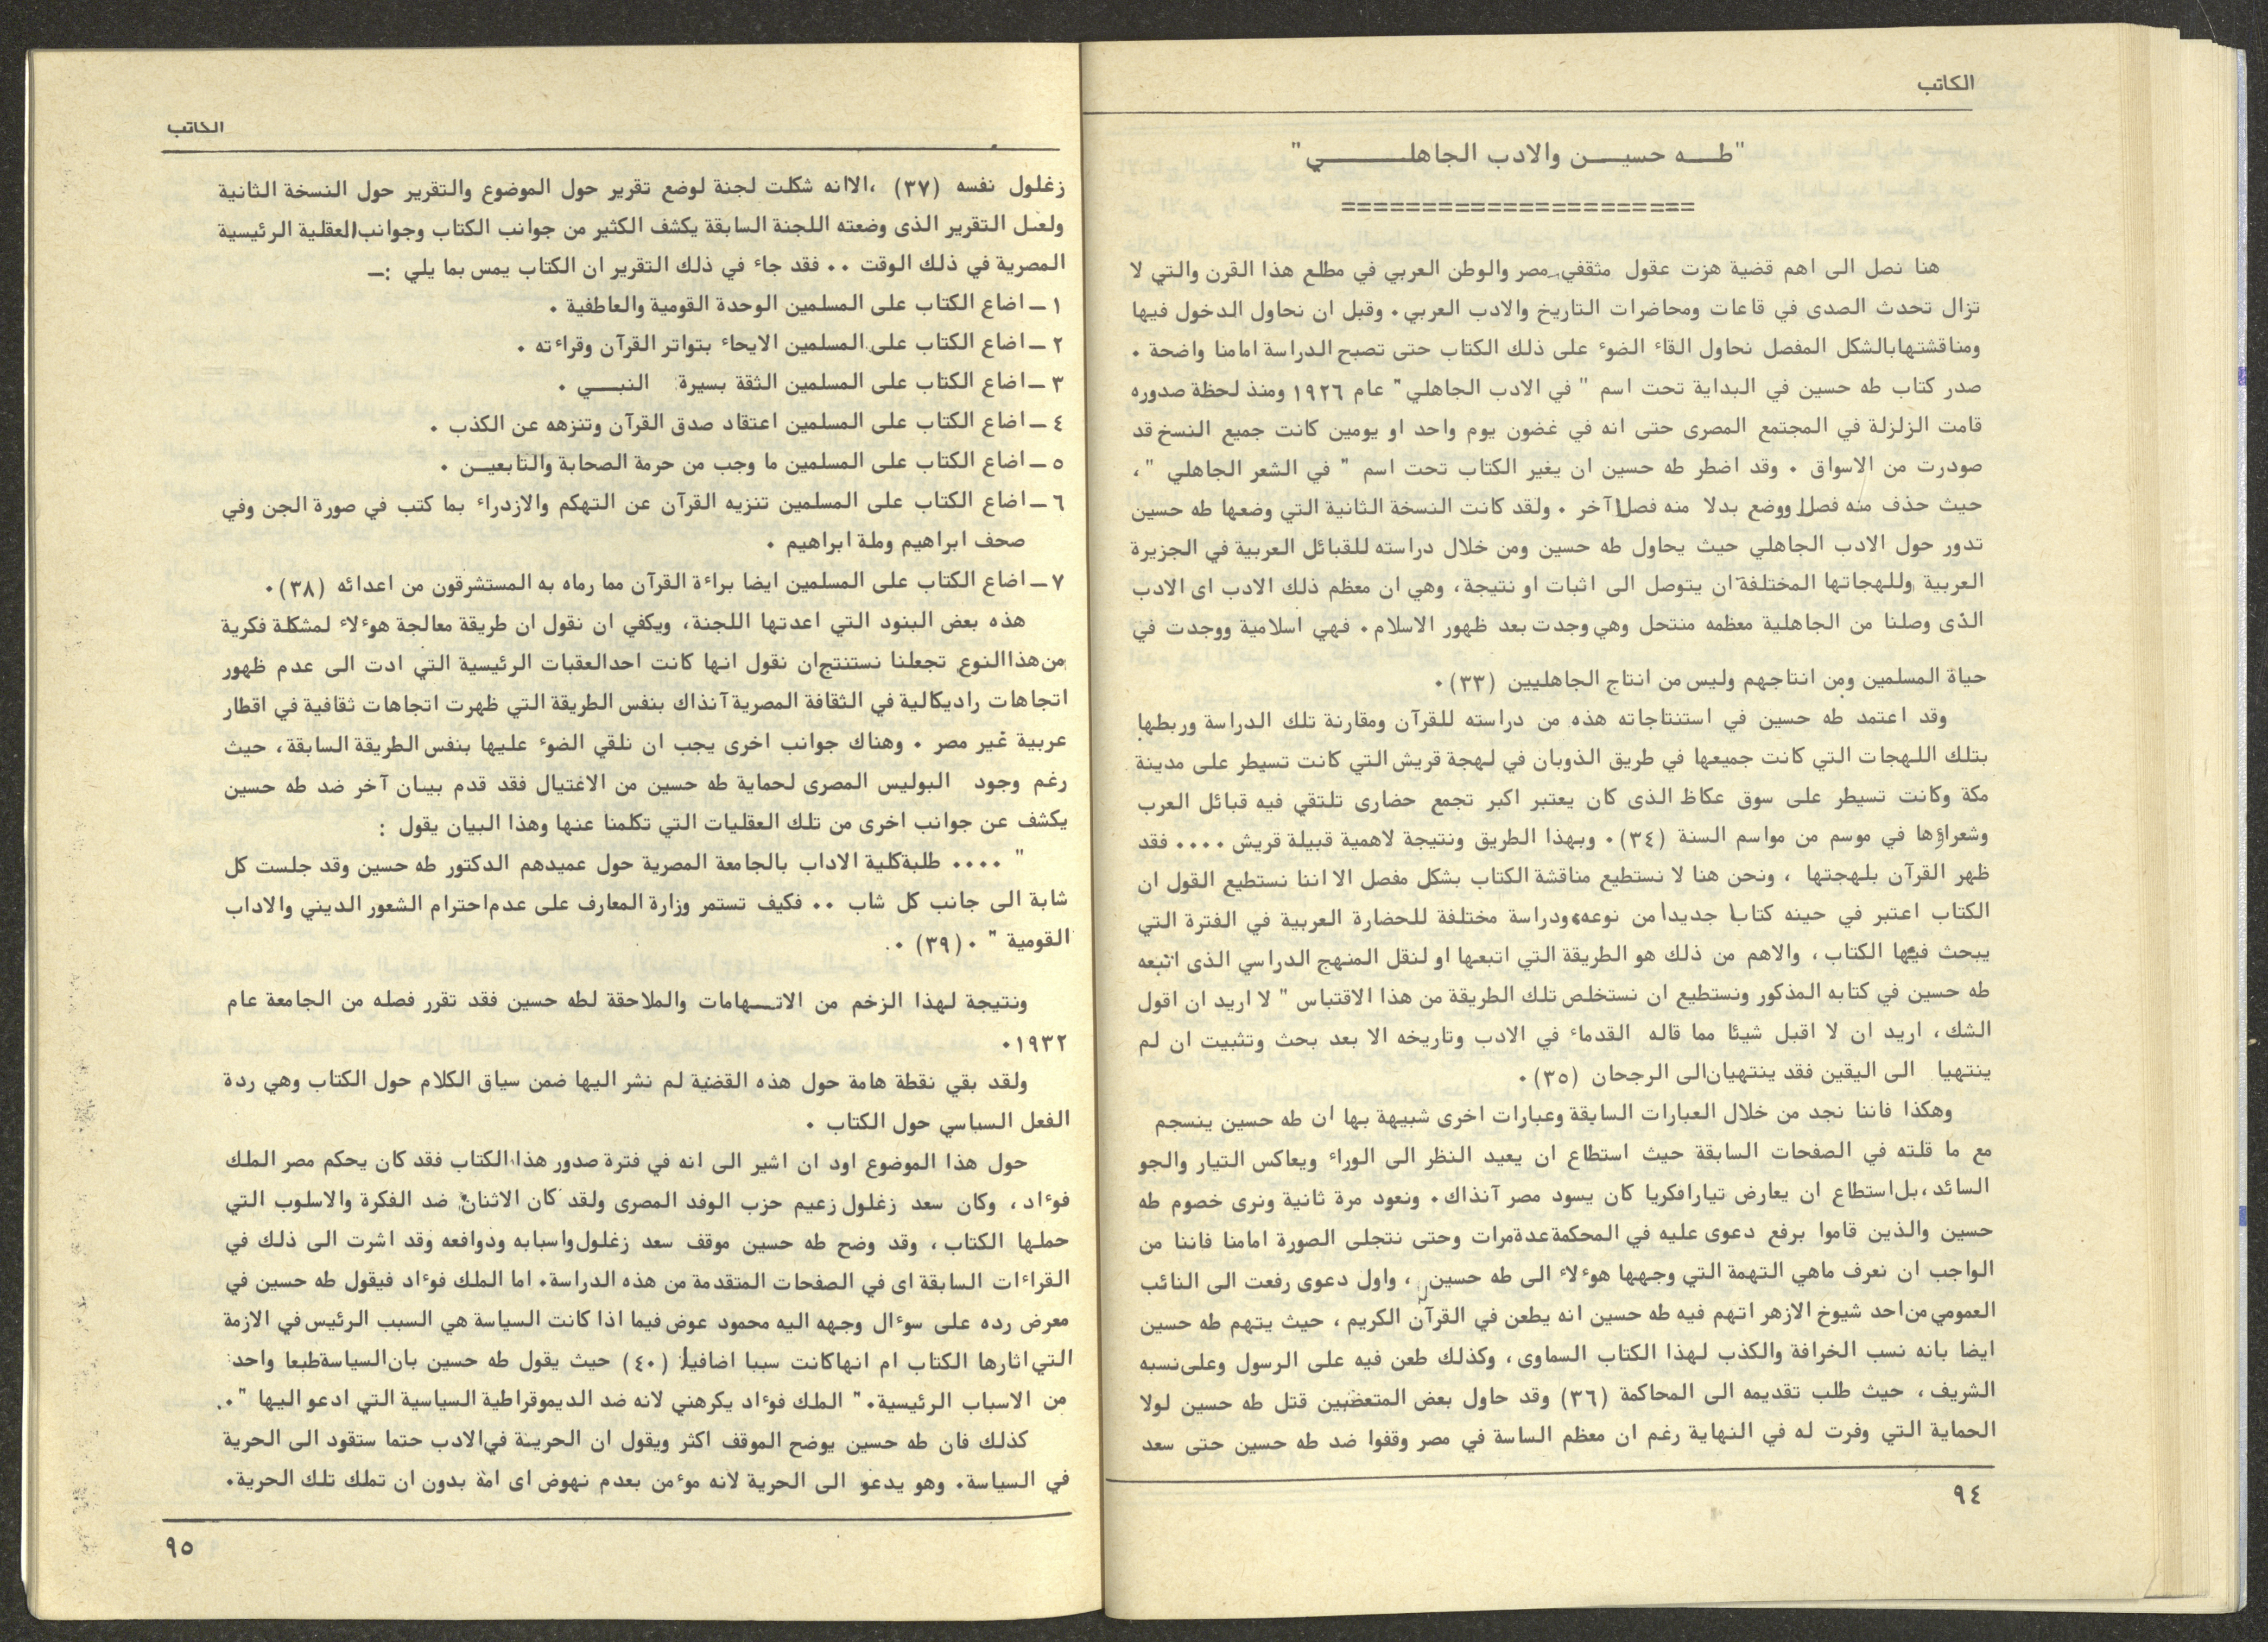 الكاتب
"طـــه حسيــــن والادب الجاهلــــــــي"
======================
هنا نصل الى اهم قضية هزت عقول مثقفي مصر والوطن العربي في مطلع هذا القرن والتي لا
تزال تحدث الصدى في قاعات ومحاضرات التاريخ والادب العربي. وقبل ان نحاول الدخول فيها
ومناقشتها بالشكل المفصل نحاول القاء الضوء على ذلك الكتاب حتى تصبح الدراسة امامنا واضحة .
صدر كتاب طه حسين في البداية تحت اسم " في الادب الجاهلي" عام ١٩٢٦ ومنذ لحظة صدوره
قامت الزلزلة في المجتمع المصرى حتى انه في غضون يوم واحد او يومين كانت جميع النسخ قد
صودرت من الاسواق . وقد اضطر طه حسين ان يغير الكتاب تحت اسم " في الشعر الجاهلي "،
حيث حذف منه فصلا ووضع بدلا منه فصلا آخر . ولقد كانت النسخة الثانية التي وضعها طه حسين
تدور حول الادب الجاهلي حيث يحاول طه حسين ومن خلال دراسته للقبائل العربية في الجزيرة
العربية وللهجاتها المختلفة ان يتوصل الى اثبات او نتيجة، وهي ان معظم ذلك الادب اى الادب
الذى وصلنا من الجاهلية معظمه منتحل وهي وجدت بعد ظهور الاسلام. فهي اسلامية ووجدت في
حياة المسلمين ومن انتاجهم وليس من انتاج الجاهليين (٣٣).
وقد اعتمد طه حسين في استنتاجاته هذه من دراسته للقرآن ومقارنة تلك الدراسة وربطها
بتلك اللهجات التي كانت جميعها في طريق الذوبان في لهجة قريش التي كانت تسيطر على مدينة
مكة وكانت تسيطر على سوق عكاظ الذى كان يعتبر اكبر تجمع حضارى تلتقي فيه قبائل العرب
وشعراؤها في موسم من مواسم السنة (٣٤). وبهذا الطريق ونتيجة لاهمية قبيلة قريش .... فقد
ظهر القرآن بلهجتها ، ونحن هنا لا نستطيع مناقشة الكتاب بشكل مفصل الا اننا نستطيع القول ان
الكتاب اعتبر في حينه كتابا جديدا من نوعه، ودراسة مختلفة للحضارة العربية في الفترة التي
يبحث فيها الكتاب، والاهم من ذلك هو الطريقة التي اتبعها او لنقل المنهج الدراسي الذى اتبعه
طه حسين في كتابه المذكور ونستطيع ان نستخلص تلك الطريقة من هذا الاقتباس " لا اريد ان اقول
الشك، اريد ان لا اقبل شيئا مما قاله القدماء في الادب وتاريخه الا بعد بحث وتثبيت ان لم
ينتهيا الى اليقين فقد ينتهيان الى الرجحان (٣٥).
وهكذا فاننا نجد من خلال العبارات السابقة وعبارات اخرى شبيهة بها ان طه حسين ينسجم
مع ما قلته في الصفحات السابقة حيث استطاع ان يعيد النظر الى الوراء ويعاكس التيار والجو
السائد، بل استطاع ان يعارض تيارا فكريا كان يسود مصر آنذاك. ونعود مرة ثانية ونرى خصوم طه
حسين والذين قاموا برفع دعوى عليه في المحكمة عدة مرات وحتى نتجلى الصورة امامنا فاننا من
الواجب ان نعرف ماهي التهمة التي وجهها هوءلاء الى طه حسين ، واول دعوى رفعت الى النائب
العمومي من احد شيوخ الازهر اتهم فيه طه حسين انه يطعن في القرآن الكريم، حيث يتهم طه حسين
ايضا بانه نسب الخرافة والكذب لهذا الكتاب السماوى، وكذلك طعن فيه على الرسول وعلى نسبه
الشريف، حيث طلب تقديمه الى المحاكمة (٣٦) وقد حاول بعض المتعصبين قتل طه حسين لولا
الحماية التي وفرت له في النهاية رغم ان معظم الساسة في مصر وقفوا ضد طه حسين حتى سعد
٩٤
الكاتب
زغلول نفسه (٣٧) ،الاانه شكلت لجنة لوضع تقرير حول الموضوع والتقرير حول النسخة الثانية
ولعل التقرير الذى وضعته اللجنة السابقة يكشف الكثير من جوانب الكتاب وجوانب العقلية الرئيسية
المصرية في ذلك الوقت .. فقد جاء في ذلك التقرير ان الكتاب يمس بما يلي :ـ
١ ـ اضاع الكتاب على المسلمين الوحدة القومية والعاطفية .
٢ ـ اضاع الكتاب على المسلمين الايحاء بتواتر القرآن وقراءته .
٣ ـ اضاع الكتاب على المسلمين الثقة بسيرة النبـــي .
٤ ـ اضاع الكتاب على المسلمين اعتقاد صدق القرآن وتنزهه عن الكذب .
٥ ـ اضاع الكتاب على المسلمين ما وجب من حرمة الصحابة والتابعيــن .
٦ ـ اضاع الكتاب على المسلمين تنزيه القرآن عن التهكم والازدراء بما كتب في صورة الجن وفي
صحف ابراهيم وملة ابراهيم .
٧ ـ اضاع الكتاب على المسلمين ايضا براءة القرآن مما رماه به المستشرقون من اعدائه (٣٨).
هذه بعض البنود التي اعدتها اللجنة، ويكفي ان نقول ان طريقة معالجة هوءلاء لمشكلة فكرية
من هذا النوع تجعلنا نستنتج ان نقول انها كانت احد العقبات الرئيسية التي ادت الى عدم ظهور
اتجاهات راديكالية في الثقافة المصرية آنذاك بنفس الطريقة التي ظهرت اتجاهات ثقافية في اقطار
عربية غير مصر . وهناك جوانب اخرى يجب ان نلقي الضوء عليها بنفس الطريقة السابقة، حيث
رغم وجود البوليس المصرى لحماية طه حسين من الاغتيال فقد قدم بيان آخر ضد طه حسين
يكشف عن جوانب اخرى من تلك العقليات التي تكلمنا عنها وهذا البيان يقول :
" .... طلبة كلية الاداب بالجامعة المصرية حول عميدهم الدكتور طه حسين وقد جلست كل
شابة الى جانب كل شاب .. فكيف تستمر وزارة المعارف على عدم احترام الشعور الديني والاداب
القومية " .(٣٩) .
ونتيجة لهذا الزخم من الاتـــهامات والملاحقة لطه حسين فقد تقرر فصله من الجامعة عام
١٩٣٢.
ولقد بقي نقطة هامة حول هذه القضية لم نشر اليها ضمن سياق الكلام حول الكتاب وهي ردة
الفعل السياسي حول الكتاب .
حول هذا الموضوع اود ان اشير الى انه في فترة صدور هذا الكتاب فقد كان يحكم مصر الملك
فوءاد، وكان سعد زغلول زعيم حزب الوفد المصرى ولقد كان الاثنان ضد الفكرة والاسلوب التي
حملها الكتاب، وقد وضح طه حسين موقف سعد زغلول واسبابه ودوافعه وقد اشرت الى ذلك في
القراءات السابقة اى في الصفحات المتقدمة من هذه الدراسة. اما الملك فوءاد فيقول طه حسين في
معرض رده على سوءال وجهه اليه محمود عوض فيما اذا كانت السياسة هي السبب الرئيس في الازمة
التي اثارها الكتاب ام انها كانت سببا اضافيا (٤٠) حيث يقول طه حسين بان السياسة طبعا واحد
من الاسباب الرئيسية." الملك فوءاد يكرهني لانه ضد الديموقراطية السياسية التي ادعو اليها ".
كذلك فان طه حسين يوضح الموقف اكثر ويقول ان الحرية في الادب حتما ستقود الى الحرية
في السياسة. وهو يدعو الى الحرية لانه موءمن بعدم نهوض اى امة بدون ان تملك تلك الحرية.
٩٥